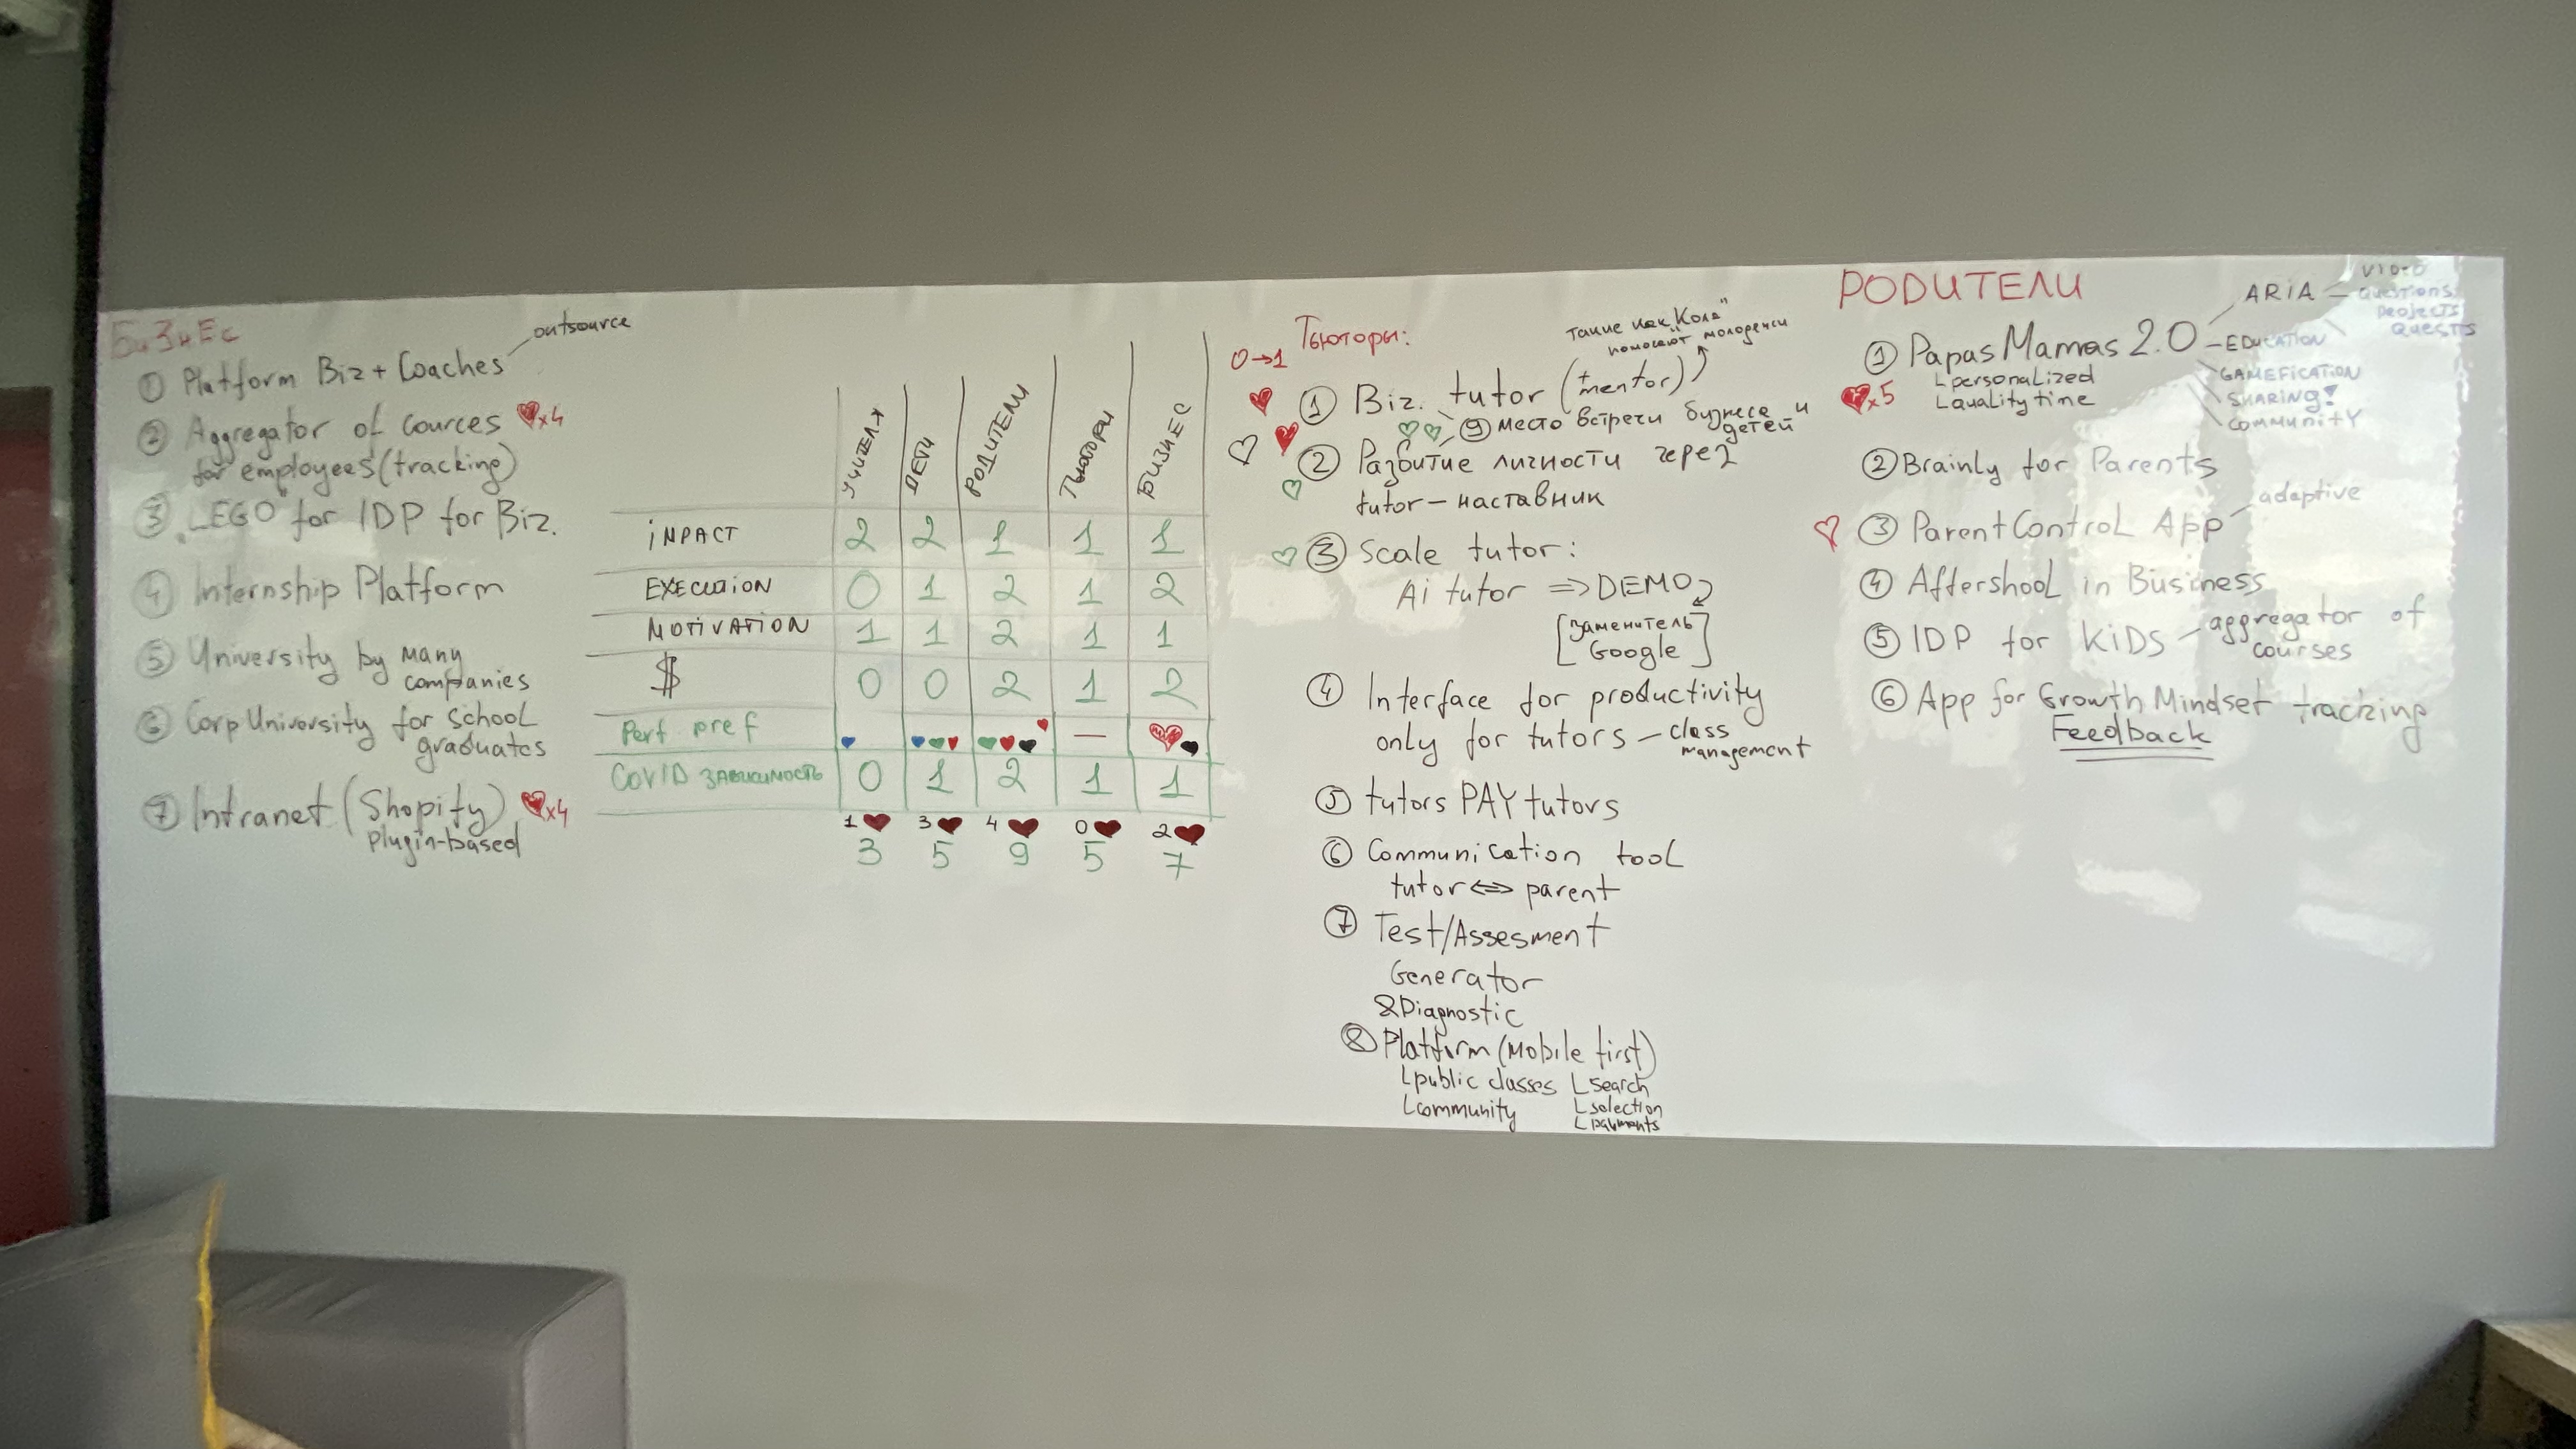 Бизнес
outsource
① Platform Biz + Coaches
② Aggregator of cources x4
for employees (tracking)
③ LEGO for IDP for Biz.
④ Internship Platform
⑤ University by many
companies
⑥ Corp University for school
graduates
⑦ Intranet (Shopify) x4
plugin-based
УЧИТЕЛЯ ДЕТИ РОДИТЕЛИ Тьюторы БИЗНЕС
iMPACT 2 2 1 1 1
EXECUTION 0 1 2 1 2
MOTIVATION 1 1 2 1 1
$ 0 0 2 1 2
pref —
COVID ЗАВИСИМОСТЬ 0 1 2 1 1
1 3 4 0 2
3 5 9 5 7
Тьюторы:
0→1
такие как "Коля"
помогают молодежи
① Biz. tutor (+mentor)
⑨ место встречи бизнеса и
детей
② Развитие личности через
tutor – наставник
③ Scale tutor:
Ai tutor ⇒ DEMO
[заменитель
Google]
④ Interface for productivity
only for tutors – class
management
⑤ tutors PAY tutors
⑥ Communication tool
tutor ⇔ parent
⑦ Test/Assesment
Generator
&Diagnostic
⑧ Platform (Mobile first)
public classes search
community selection
payments
РОДИТЕЛИ
ARiA – VIDEO
QUESTIONS
PROJECTS
QUESTS
① Papas Mamas 2.0 – EDUCATION
x5 personalized
quality time
GAMEFICATION
SHARING!
COMMUNITY
② Brainly for Parents
adaptive
③ Parent Control App
④ Aftershool in Business
⑤ IDP for KiDS – aggregator of
courses
⑥ App for Growth Mindset tracking
Feedback